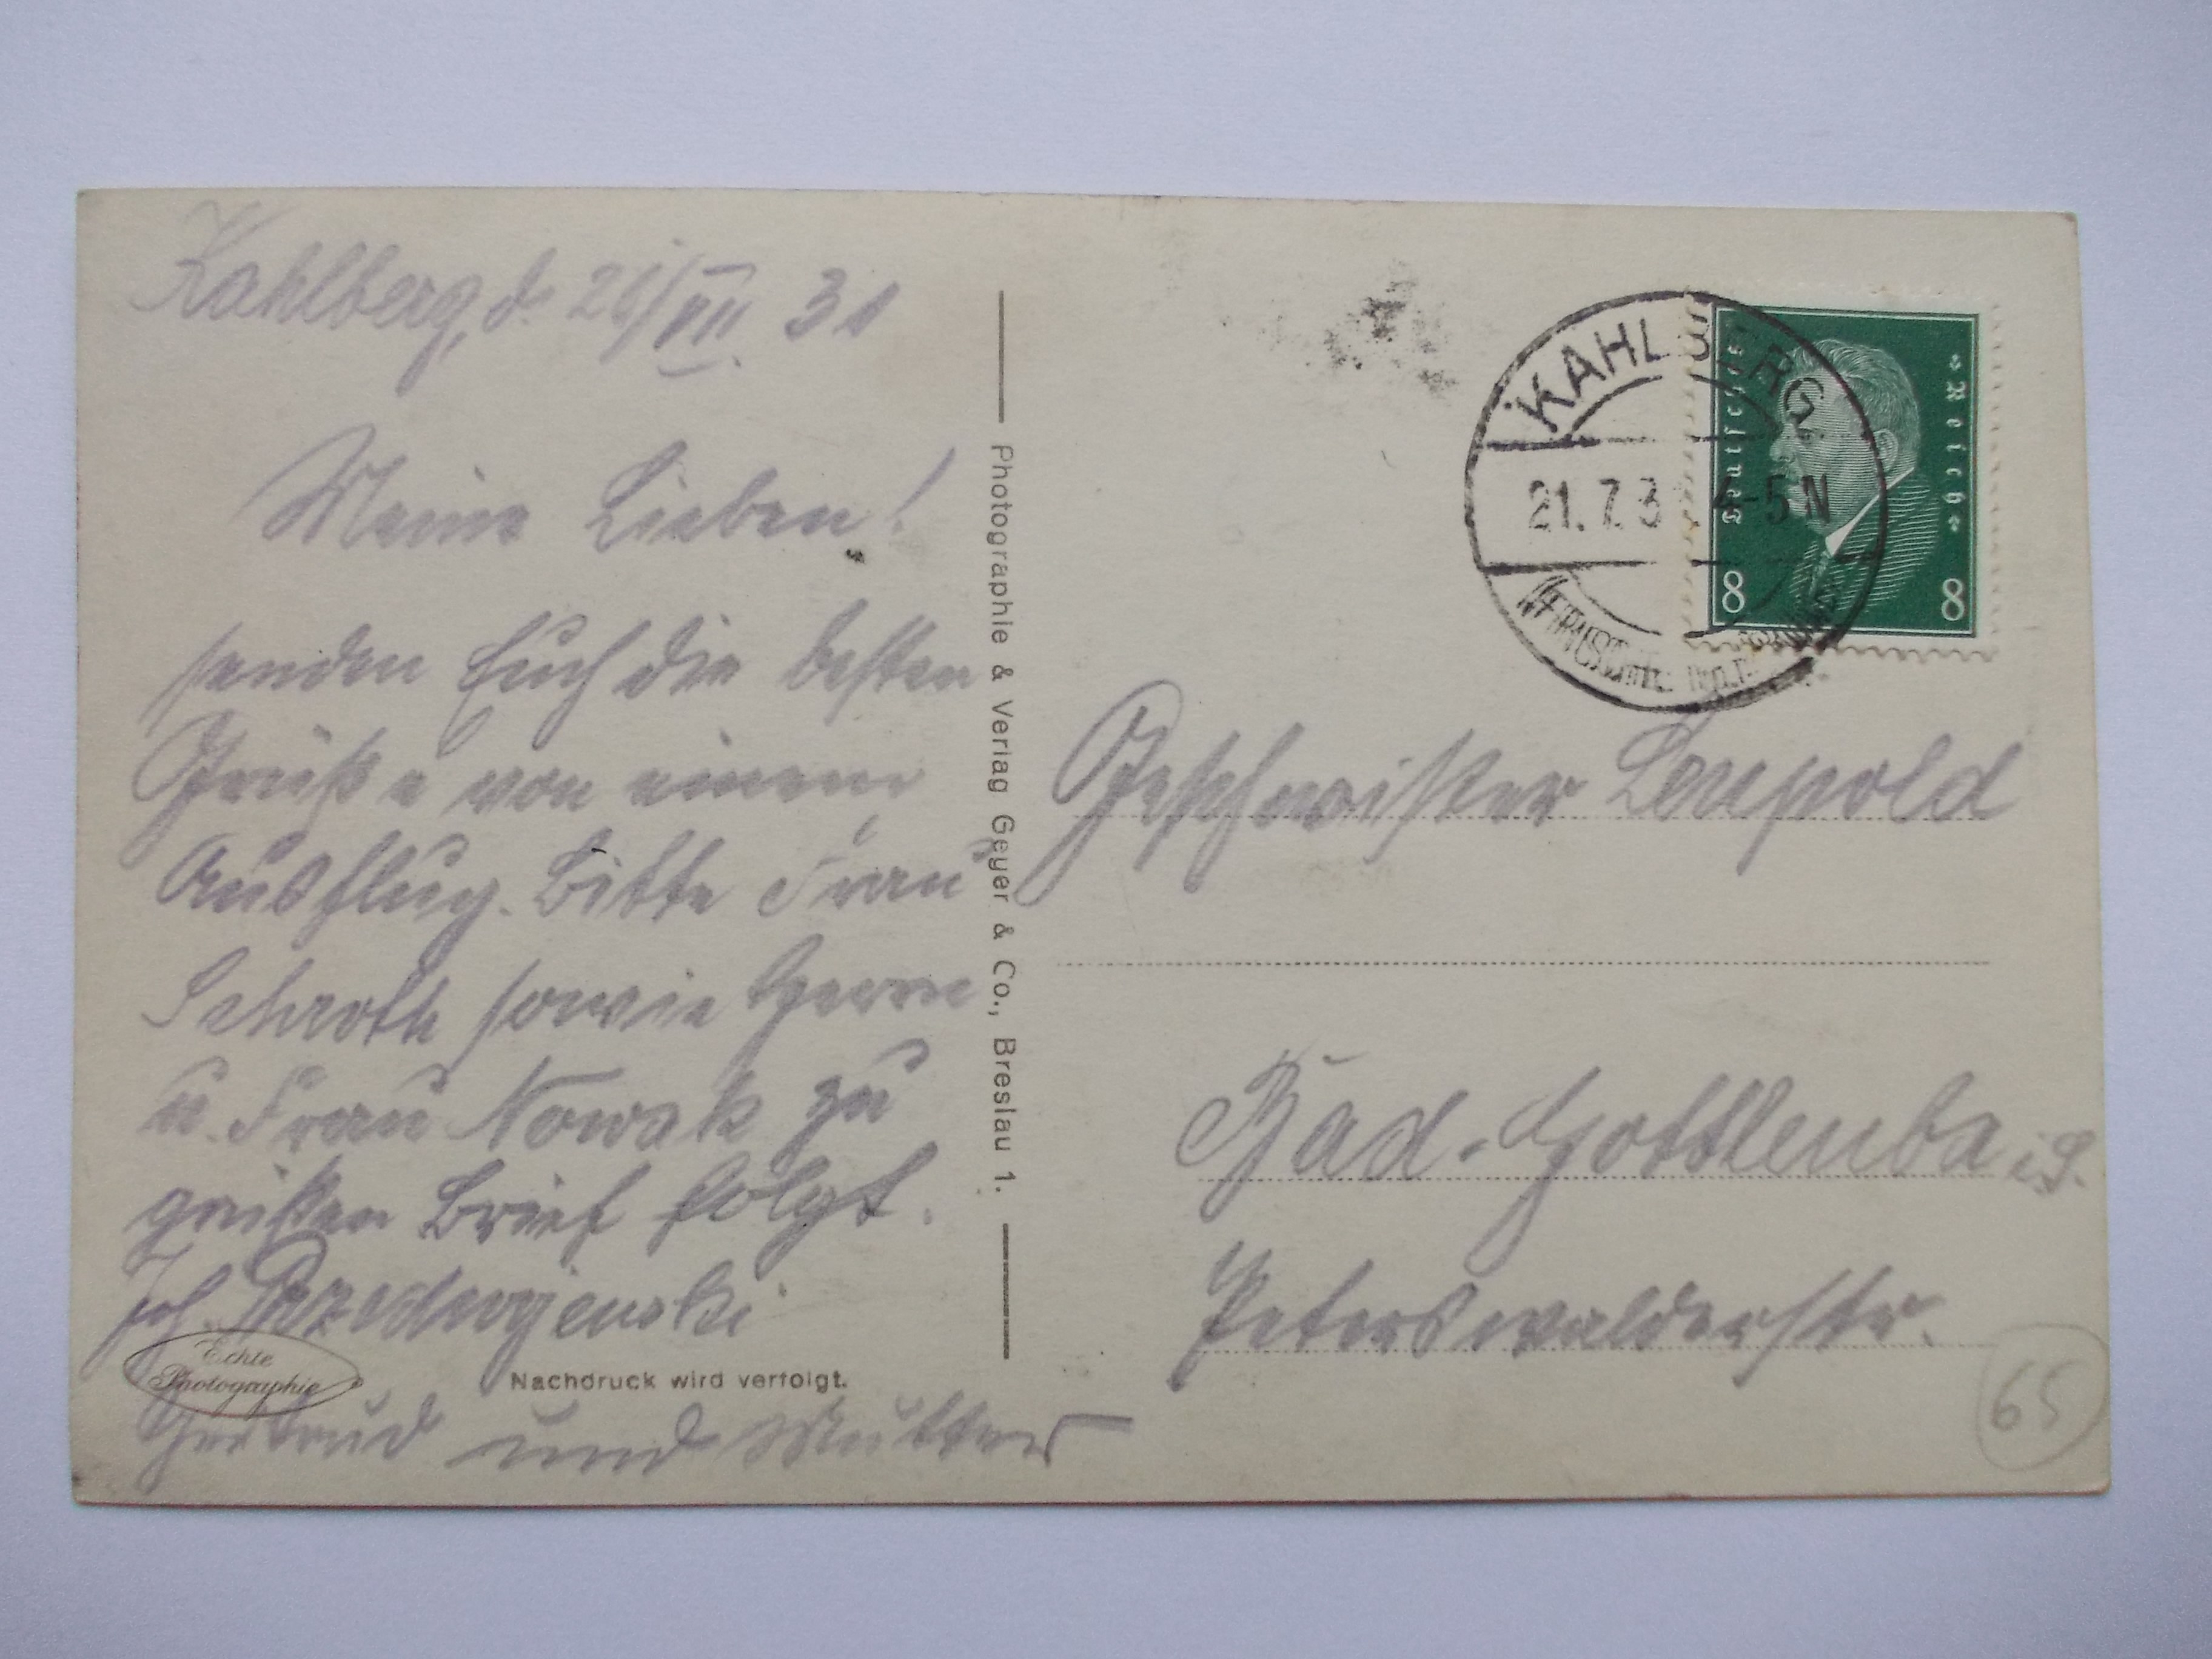 Kahlberg, d. 21/VII. 31
Meine Lieben!
senden Euch die besten
Grüße von einem
Ausflug. Bitte Frau
Schroth sowie Herrn
u. Frau Nowak zu
grüßen Brief folgt.
Joh.
Gertrud und Mutter
Echte
Photographie
Nachdruck wird verfolgt.
Photographie & Verlag Geyer & Co., Breslau 1.
KAHLBERG
21.7.3 4-5 N
Deutsches Reich
8 8
Geschwister Leupold
Bad-Gottleuba i. S.
Peterswalderstr.
65